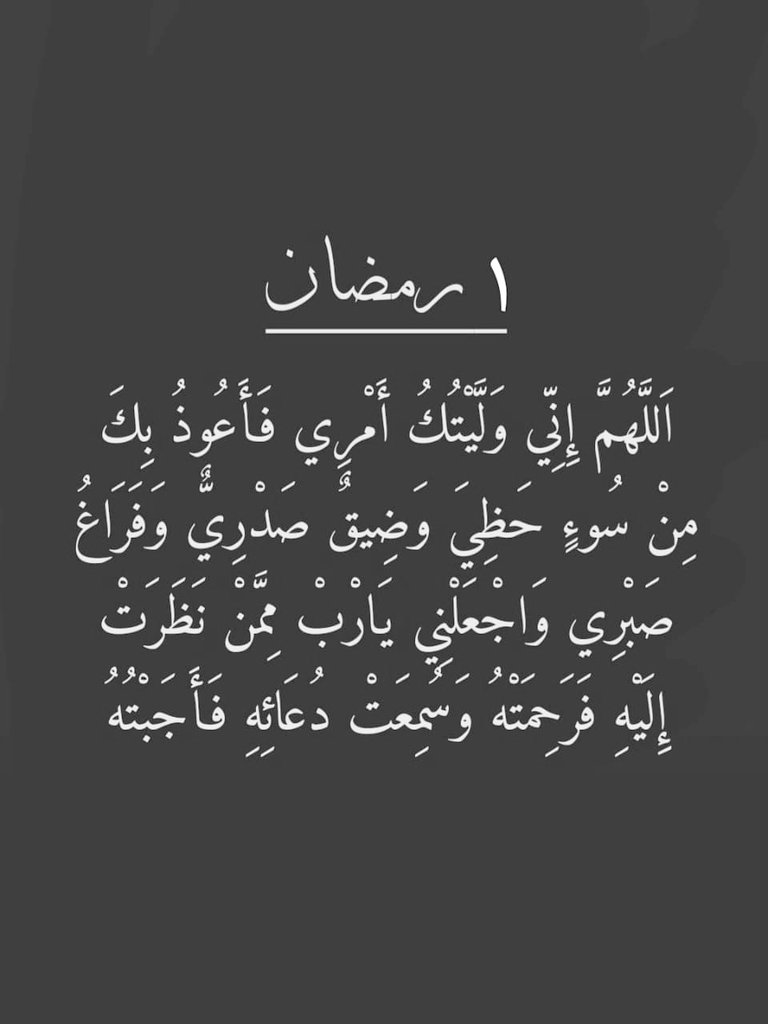 ١ رمضان
اَللَّهُمَّ إِنِّي وَلَّيْتُكُ أَمْرِي فَأَعُوذُ بِكَ
مِنْ سُوءٍ حَظِيَ وَضِيقٌ صَدْرِيٌّ وَفَرَاغُ
صَبْرِي وَاجْعَلْنِي يَارْبْ مِمَّنْ نَظَرَتْ
إِلَيْهِ فَرَحِمَتْهُ وَسُمِعَتْ دُعَائِهِ فَأَجَبْتُهُ